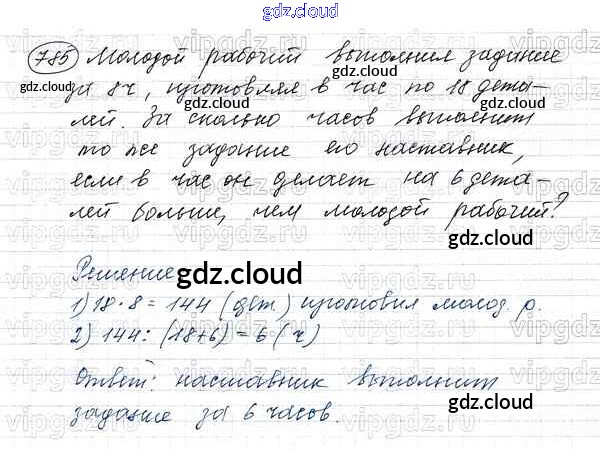 gdz.cloud
785 Молодой рабочий выполнил задание
за 8ч, изготовляя в час по 18 дета-
лей. За сколько часов выполнит
то же задание его наставник,
если в час он делает на 6 дета-
лей больше, чем молодой рабочий?
Решение
1) 18 · 8 = 144 (дет.) изготовил молод. р.
2) 144 : (18+6) = 6 (ч)
Ответ: наставник выполнит
задание за 6 часов.